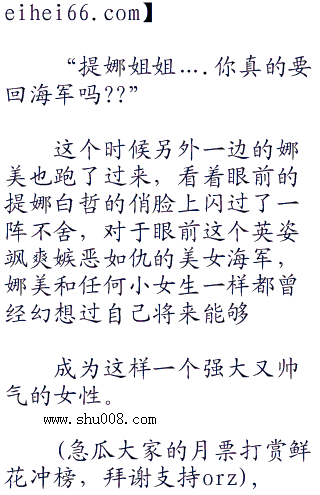 eihei66.com】
“提娜姐姐....你真的要
回海军吗??”
这个时候另外一边的娜
美也跑了过来，看着眼前的
提娜白皙的俏脸上闪过了一
阵不舍，对于眼前这个英姿
飒爽嫉恶如仇的美女海军，
娜美和任何小女生一样都曾
经幻想过自己将来能够
成为这样一个强大又帅
气的女性。
www.shu008.com
(急瓜大家的月票打赏鲜
花冲榜，拜谢支持orz)，